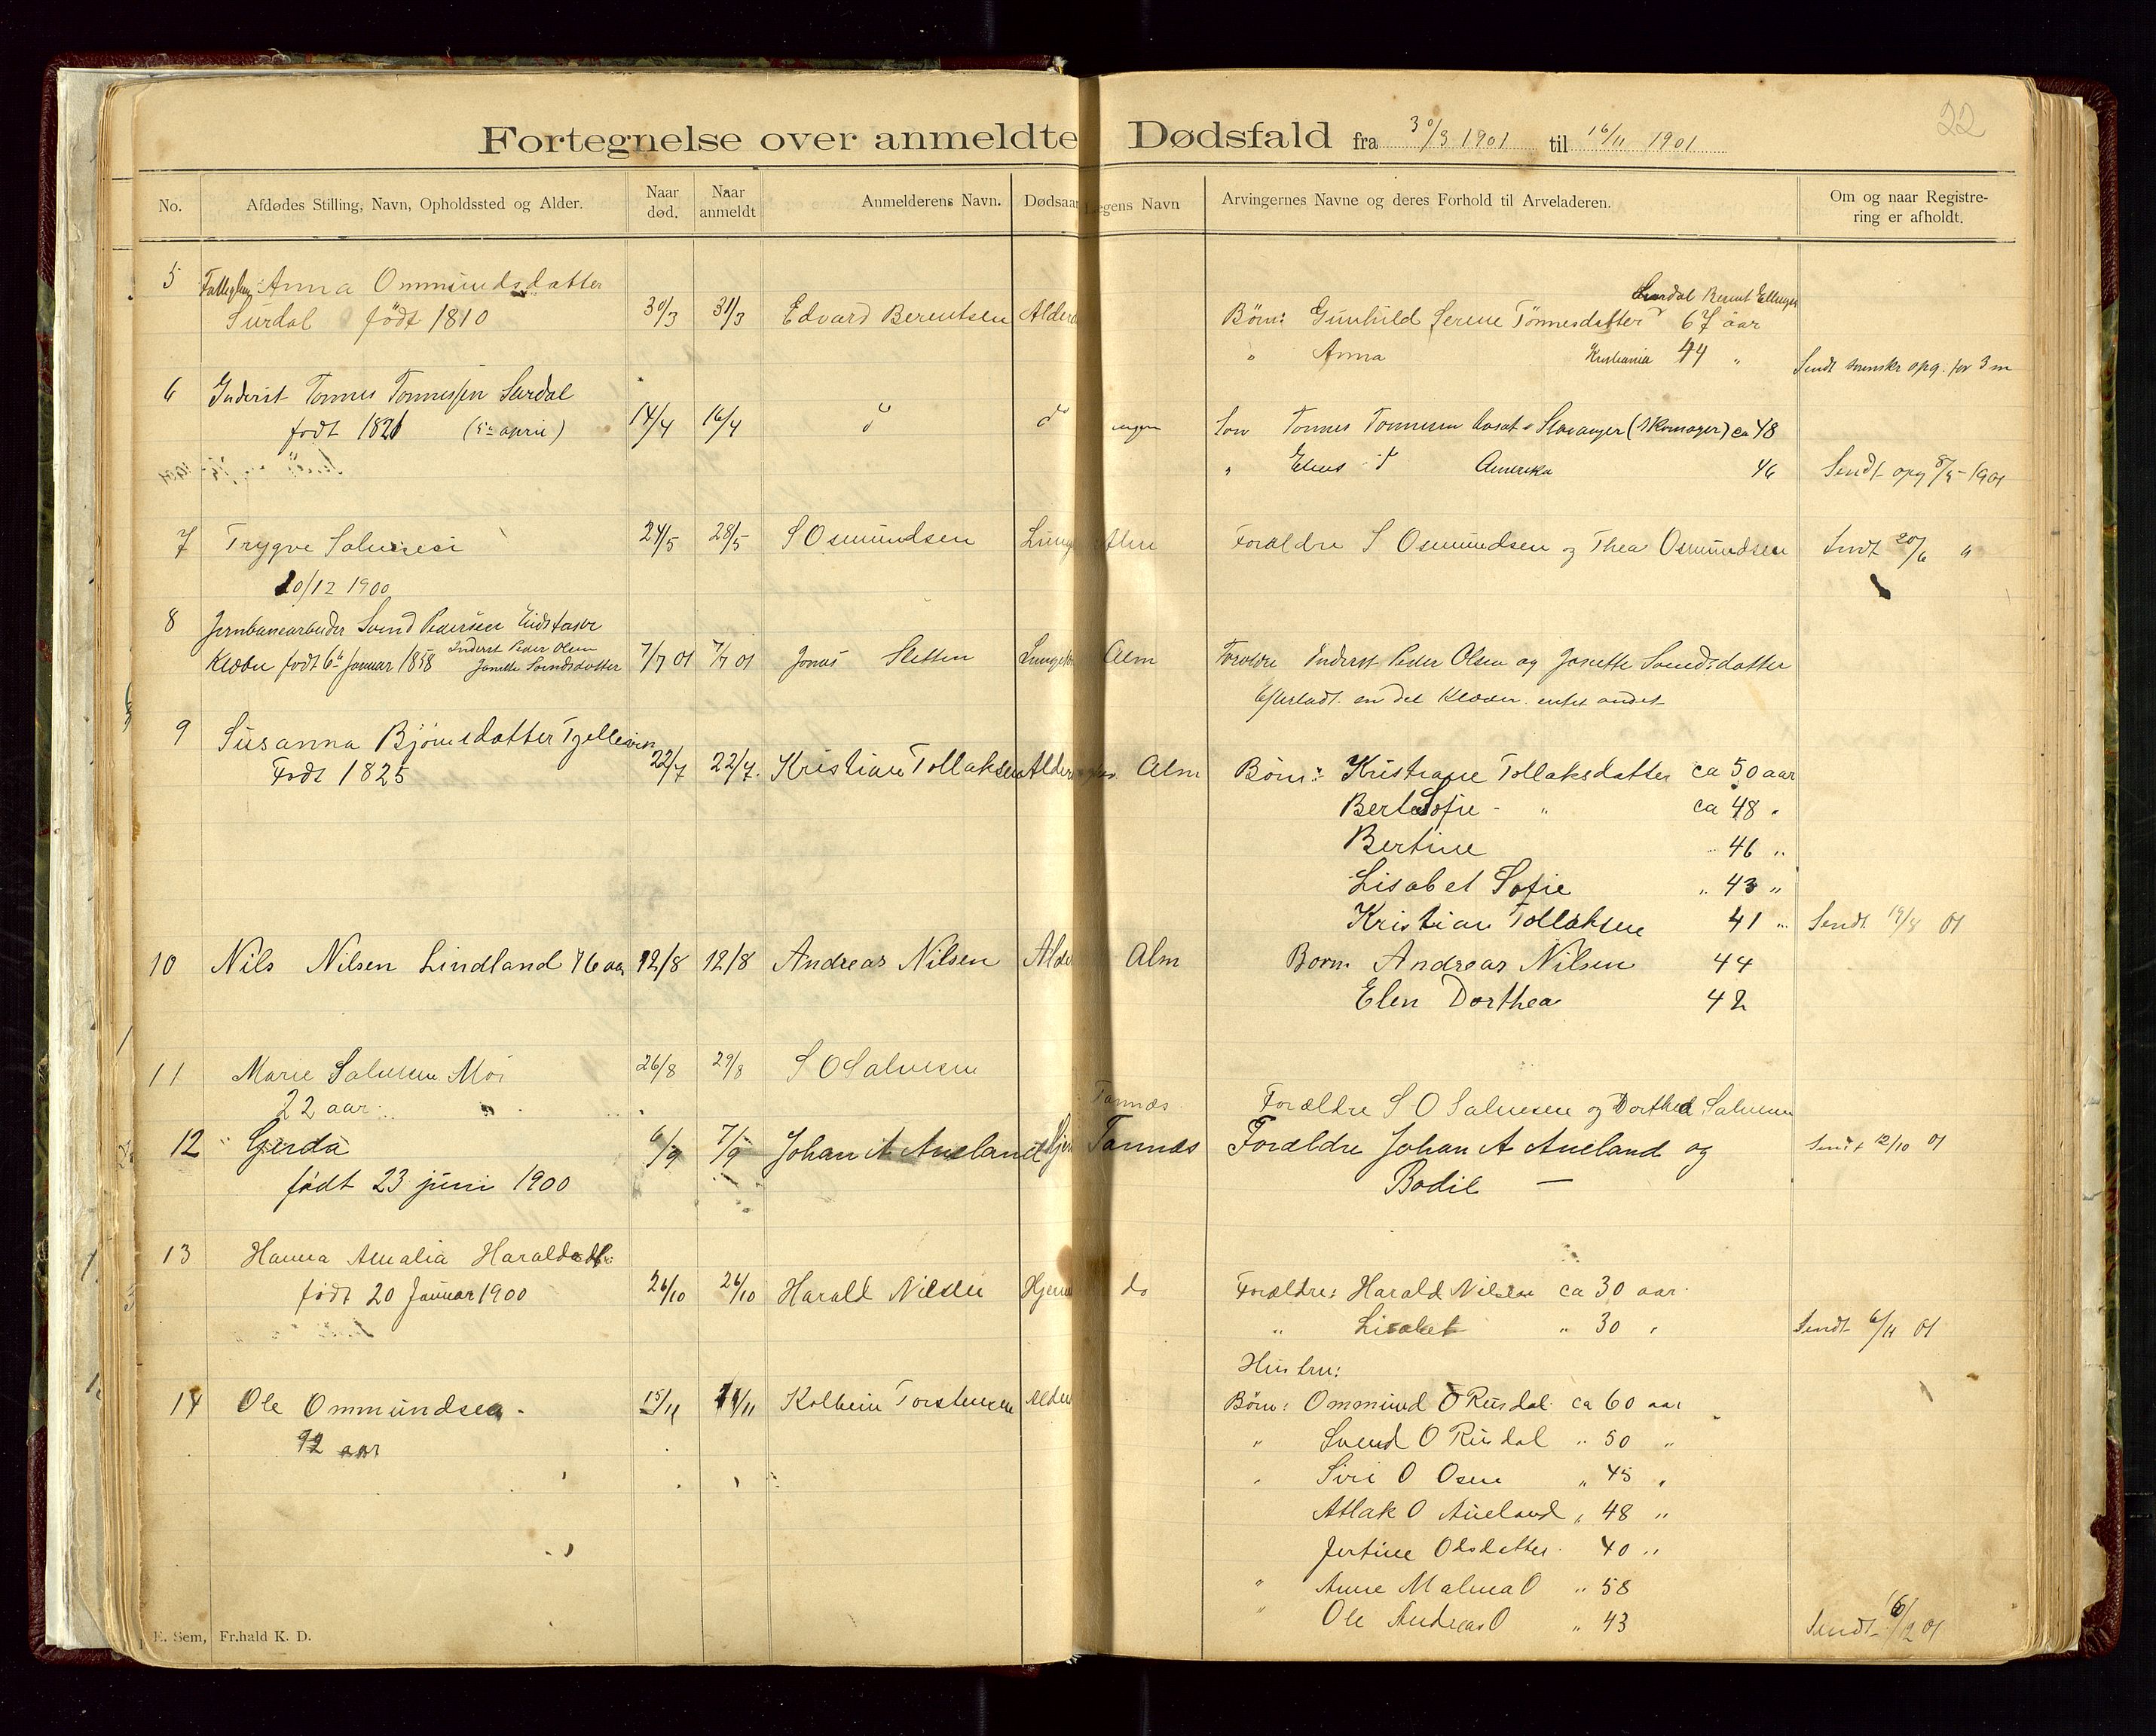 22
Fortegnelse over anmeldte Dødsfald fra 30/3 1901 til 16/11 1901
No.
Afdødes Stilling, Navn, Opholdssted og Alder.
Naar død.
Naar anmeldt
Anmelderens Navn.
Dødsaar
Lægens Navn
Arvingernes Navne og deres Forhold til Arveladeren.
Om og naar Registre-
ring er afholdt.
5 Anna Ommundsdatter
Surdal født 1810 30/3 31/3 Edvard Berentsen Alder
Surdal Berent Ellingsen
Børn: Gunhild Serene Tønnesdatter 67 aar
" Anna Kristiania 44 "
6 Inderst Tonnes Tonnessen Surdal
født 1821 (5te april) 14/4 16/4 do do ingen
Søn Tonnes Tonnessen bosat i Stavanger (Skomager) ca 48
" Elias do Amerika 46 Sendt opg 8/5 1901
7 Trygve Salvesen 24/5 28/5 S Osmundsen Lung Alm Forældre S Osmundsen og Thea Osmundsen Sendt 20/6 "
20/12 1900
8 Jernbanearbeider Svend Pedersen
født 6te Januar 1858 Inderst Peder Olsen
Janette Svendsdatter 7/7 01 7/7 01 Jonas Sletten Lunge Alm Forældre Inderst Peder Olsen og Janette Svendsdatter
Efterladt en del klæder intet andet
9 Susanna Bjørnsdatter
Født 1825 22/7 22/7. Kristian Tollaksen Alder Alm Børn: Kristiane Tollaksdatter ca 50 aar
Berte Sofie - " ca 48 "
Bertine " 46 "
Lisabet Sofie " 43 "
Kristian Tollaksen 41 " Sendt 19/8 01
10 Nils Nilsen Lindland 76 aar 12/8 12/8 Andreas Nilsen Alder Alm Børn Andreas Nilsen 44
Elen Dorthea 42
11 Marie Salvesen Moi 26/8 29/8 S O Salvesen
22 aar Tannæs Forældre S O Salvesen og Dorthea Salvesen
12 Gerda 6/9 7/9 Johan A Aueland Hjer Tannæs Forældre Johan A Aueland og Sendt 12/10 01
født 23 juni 1900 Bodil —
13 Hanna Amalia Haraldsdtr:
født 20 Januar 1900 26/10 26/10 Harald Nilsen Hjern do Forældre: Harald Nilsen ca 30 aar
" Lisabet " 30 " Sendt 6/11 01
Hustru:
14 Ole Ommundsen. 15/11 Kolbein Torstensen Alder Børn: Ommund O Rusdal ca 60 aar
92 aar " Svend O Rusdal " 50 "
" Siri O Osen " 45 "
Atlak O Aueland " 48 "
Jertine Olsdatter 40 "
" Anne Malena O " 58
" Ole Andreas O " 43 Sendt 01
E. Sem, Fr.hald K. D.